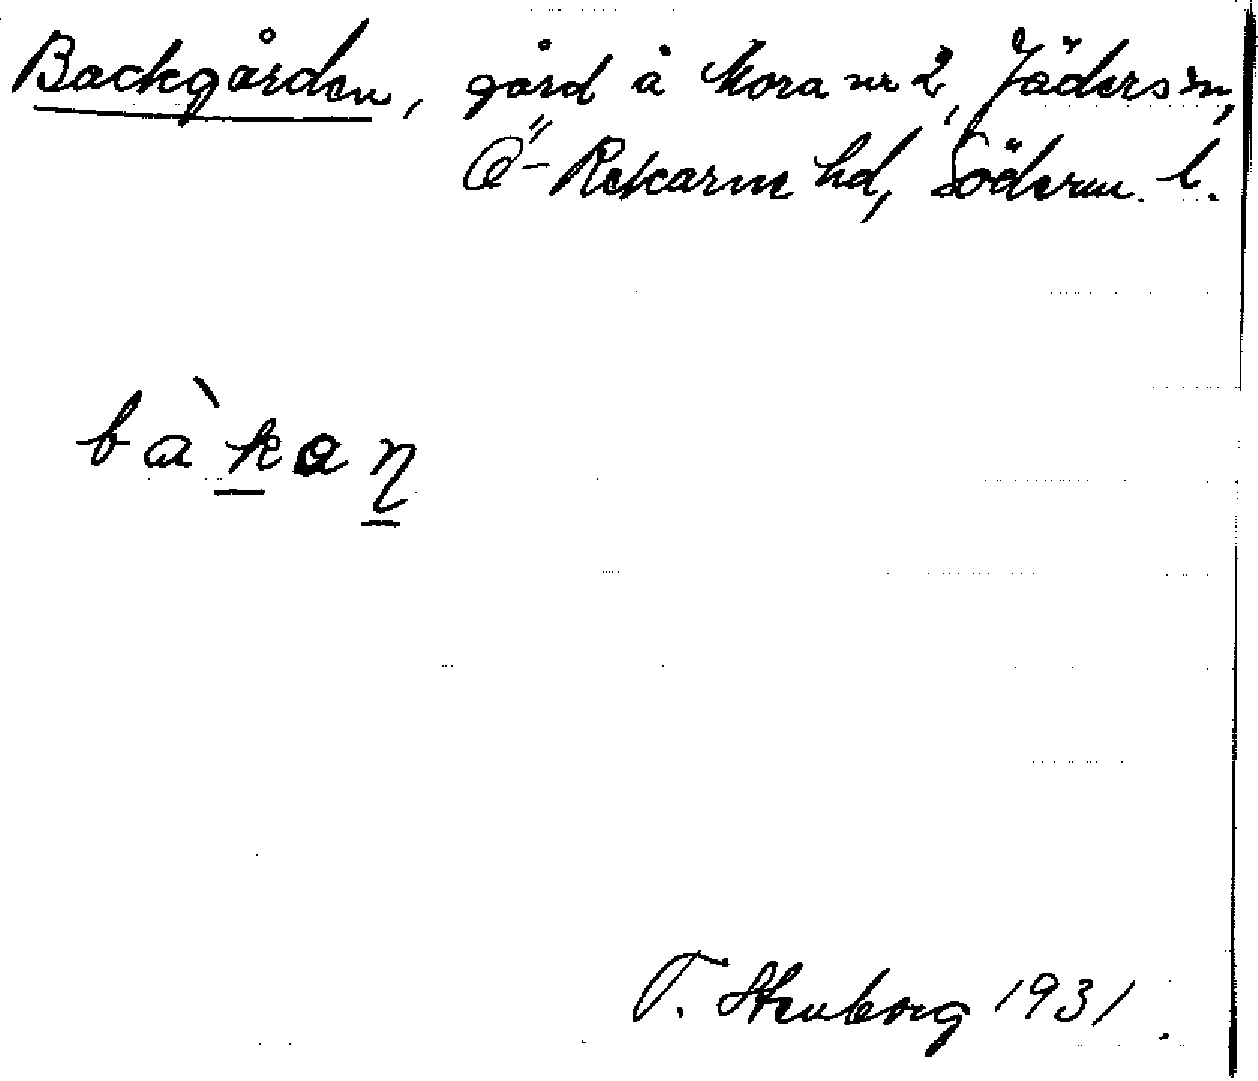 Backgården, gård å Mora nr 2, Jäders sn,
Ö-Rekarne hd, Söderm. l.
bàkaŋ
T. Stenborg 1931.